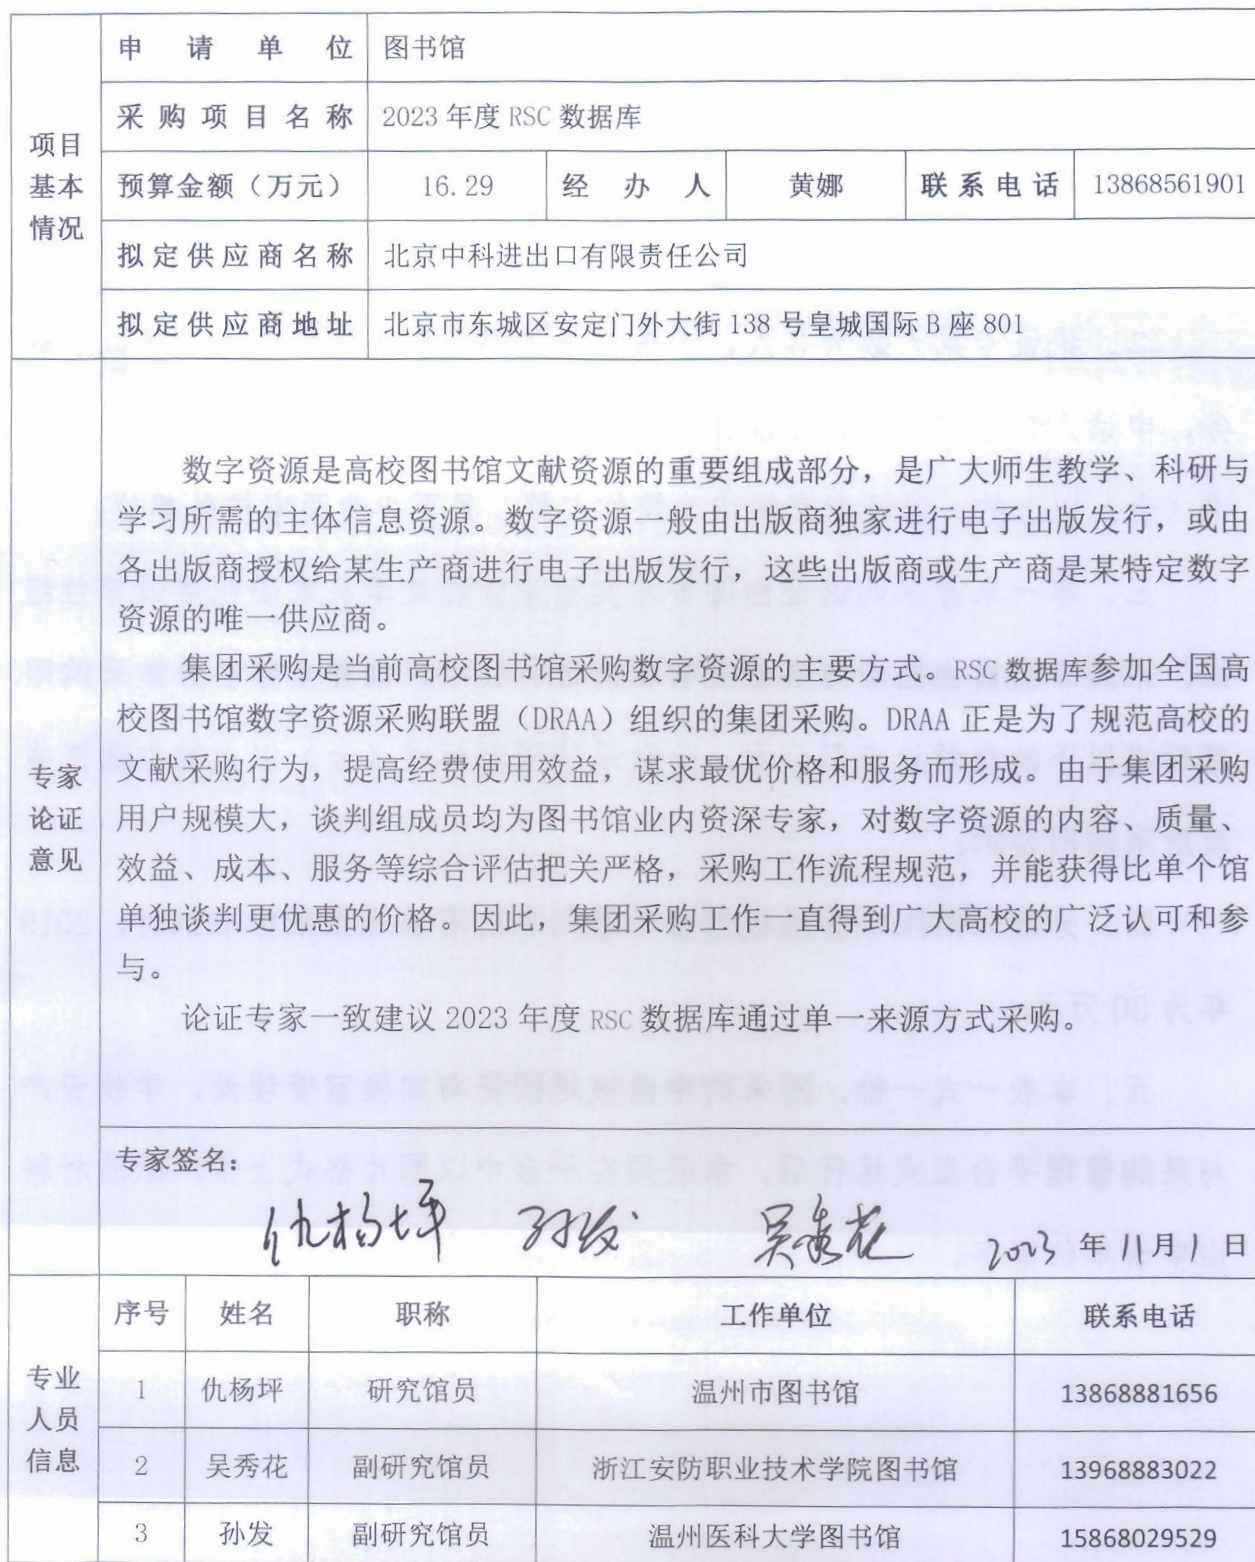 项目基本情况
申请单位 图书馆
采购项目名称 2023 年度 RSC 数据库
预算金额（万元） 16.29 经办人 黄娜 联系电话 13868561901
拟定供应商名称 北京中科进出口有限责任公司
拟定供应商地址 北京市东城区安定门外大街 138 号皇城国际 B 座 801
专家论证意见
数字资源是高校图书馆文献资源的重要组成部分，是广大师生教学、科研与
学习所需的主体信息资源。数字资源一般由出版商独家进行电子出版发行，或由
各出版商授权给某生产商进行电子出版发行，这些出版商或生产商是某特定数字
资源的唯一供应商。
集团采购是当前高校图书馆采购数字资源的主要方式。RSC 数据库参加全国高
校图书馆数字资源采购联盟（DRAA）组织的集团采购。DRAA 正是为了规范高校的
文献采购行为，提高经费使用效益，谋求最优价格和服务而形成。由于集团采购
用户规模大，谈判组成员均为图书馆业内资深专家，对数字资源的内容、质量、
效益、成本、服务等综合评估把关严格，采购工作流程规范，并能获得比单个馆
单独谈判更优惠的价格。因此，集团采购工作一直得到广大高校的广泛认可和参
与。
论证专家一致建议 2023 年度 RSC 数据库通过单一来源方式采购。
专家签名：
仇杨坪 孙发 吴秀花 2023 年 11 月 1 日
专业人员信息
序号 姓名 职称 工作单位 联系电话
1 仇杨坪 研究馆员 温州市图书馆 13868881656
2 吴秀花 副研究馆员 浙江安防职业技术学院图书馆 13968883022
3 孙发 副研究馆员 温州医科大学图书馆 15868029529